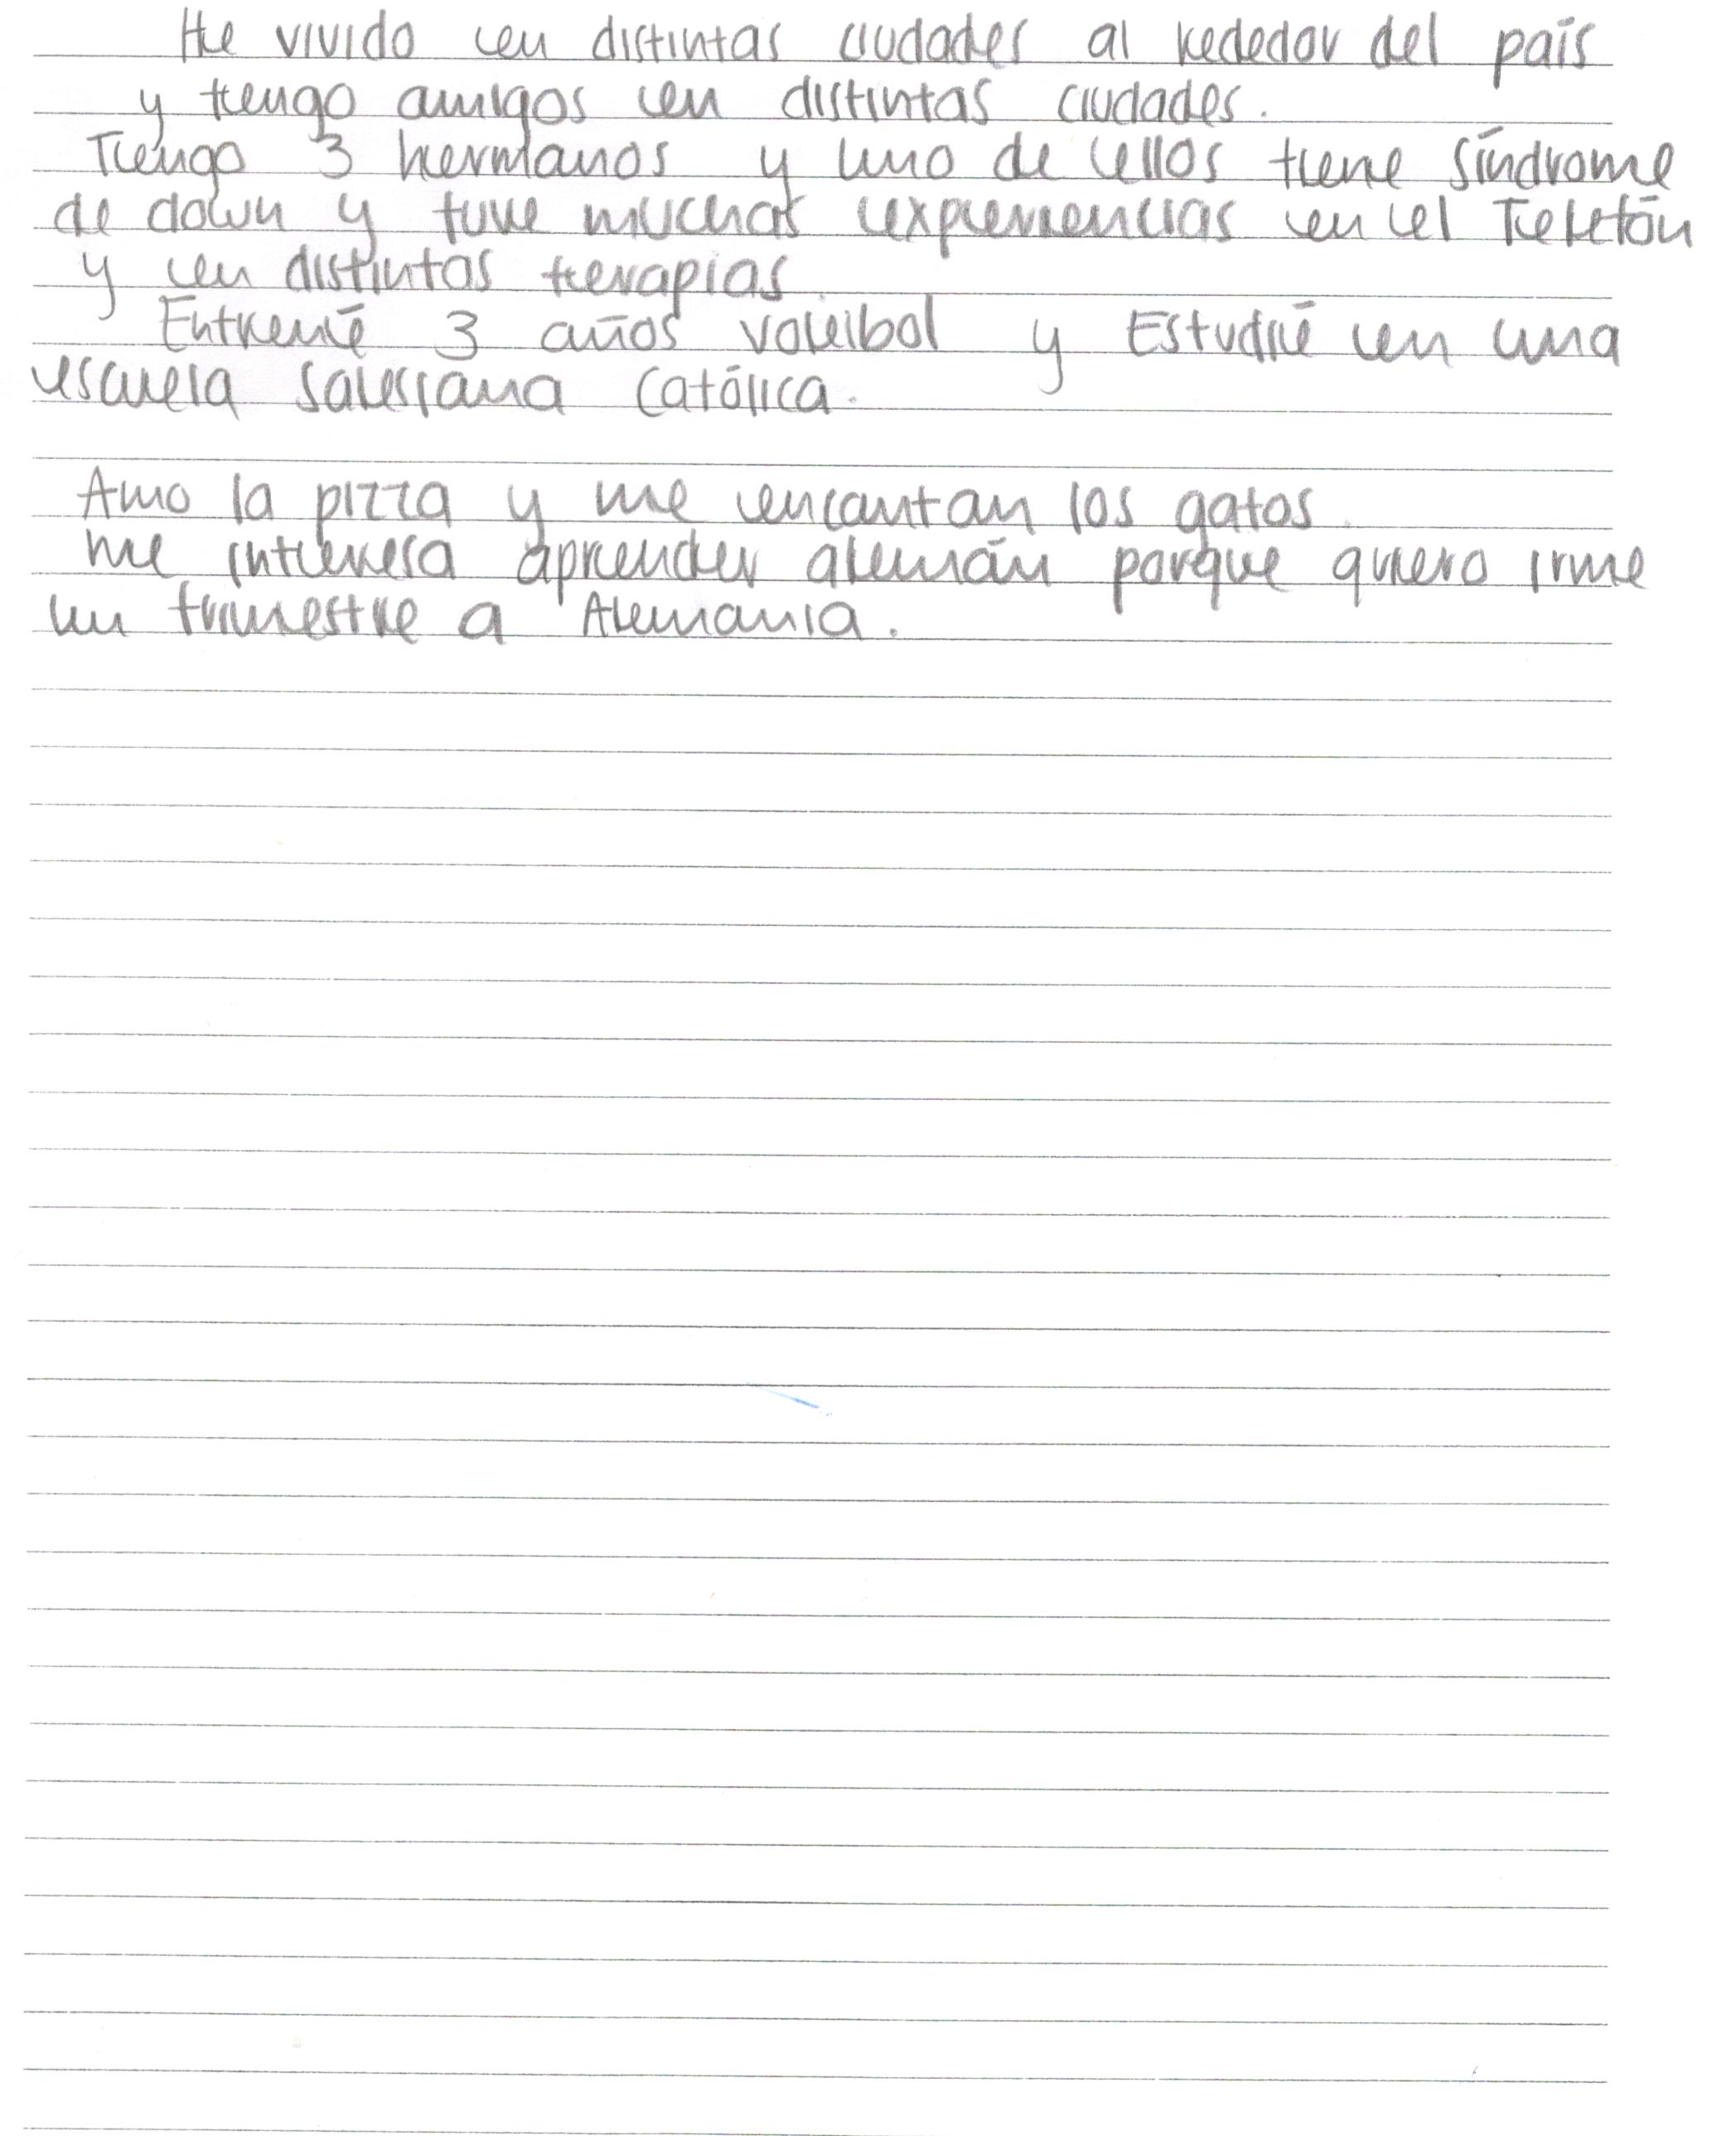 He vivido en distintas ciudades al rededor del país
y tengo amigos en distintas ciudades.
Tengo 3 hermanos y uno de ellos tiene síndrome
de down y tuve muchas experiencias en el Teletón
y en distintas terapias.
Entrené 3 años voleibol y Estudié en una
escuela salesiana católica.
Amo la pizza y me encantan los gatos.
me interesa aprender alemán porque quiero irme
un trimestre a Alemania.